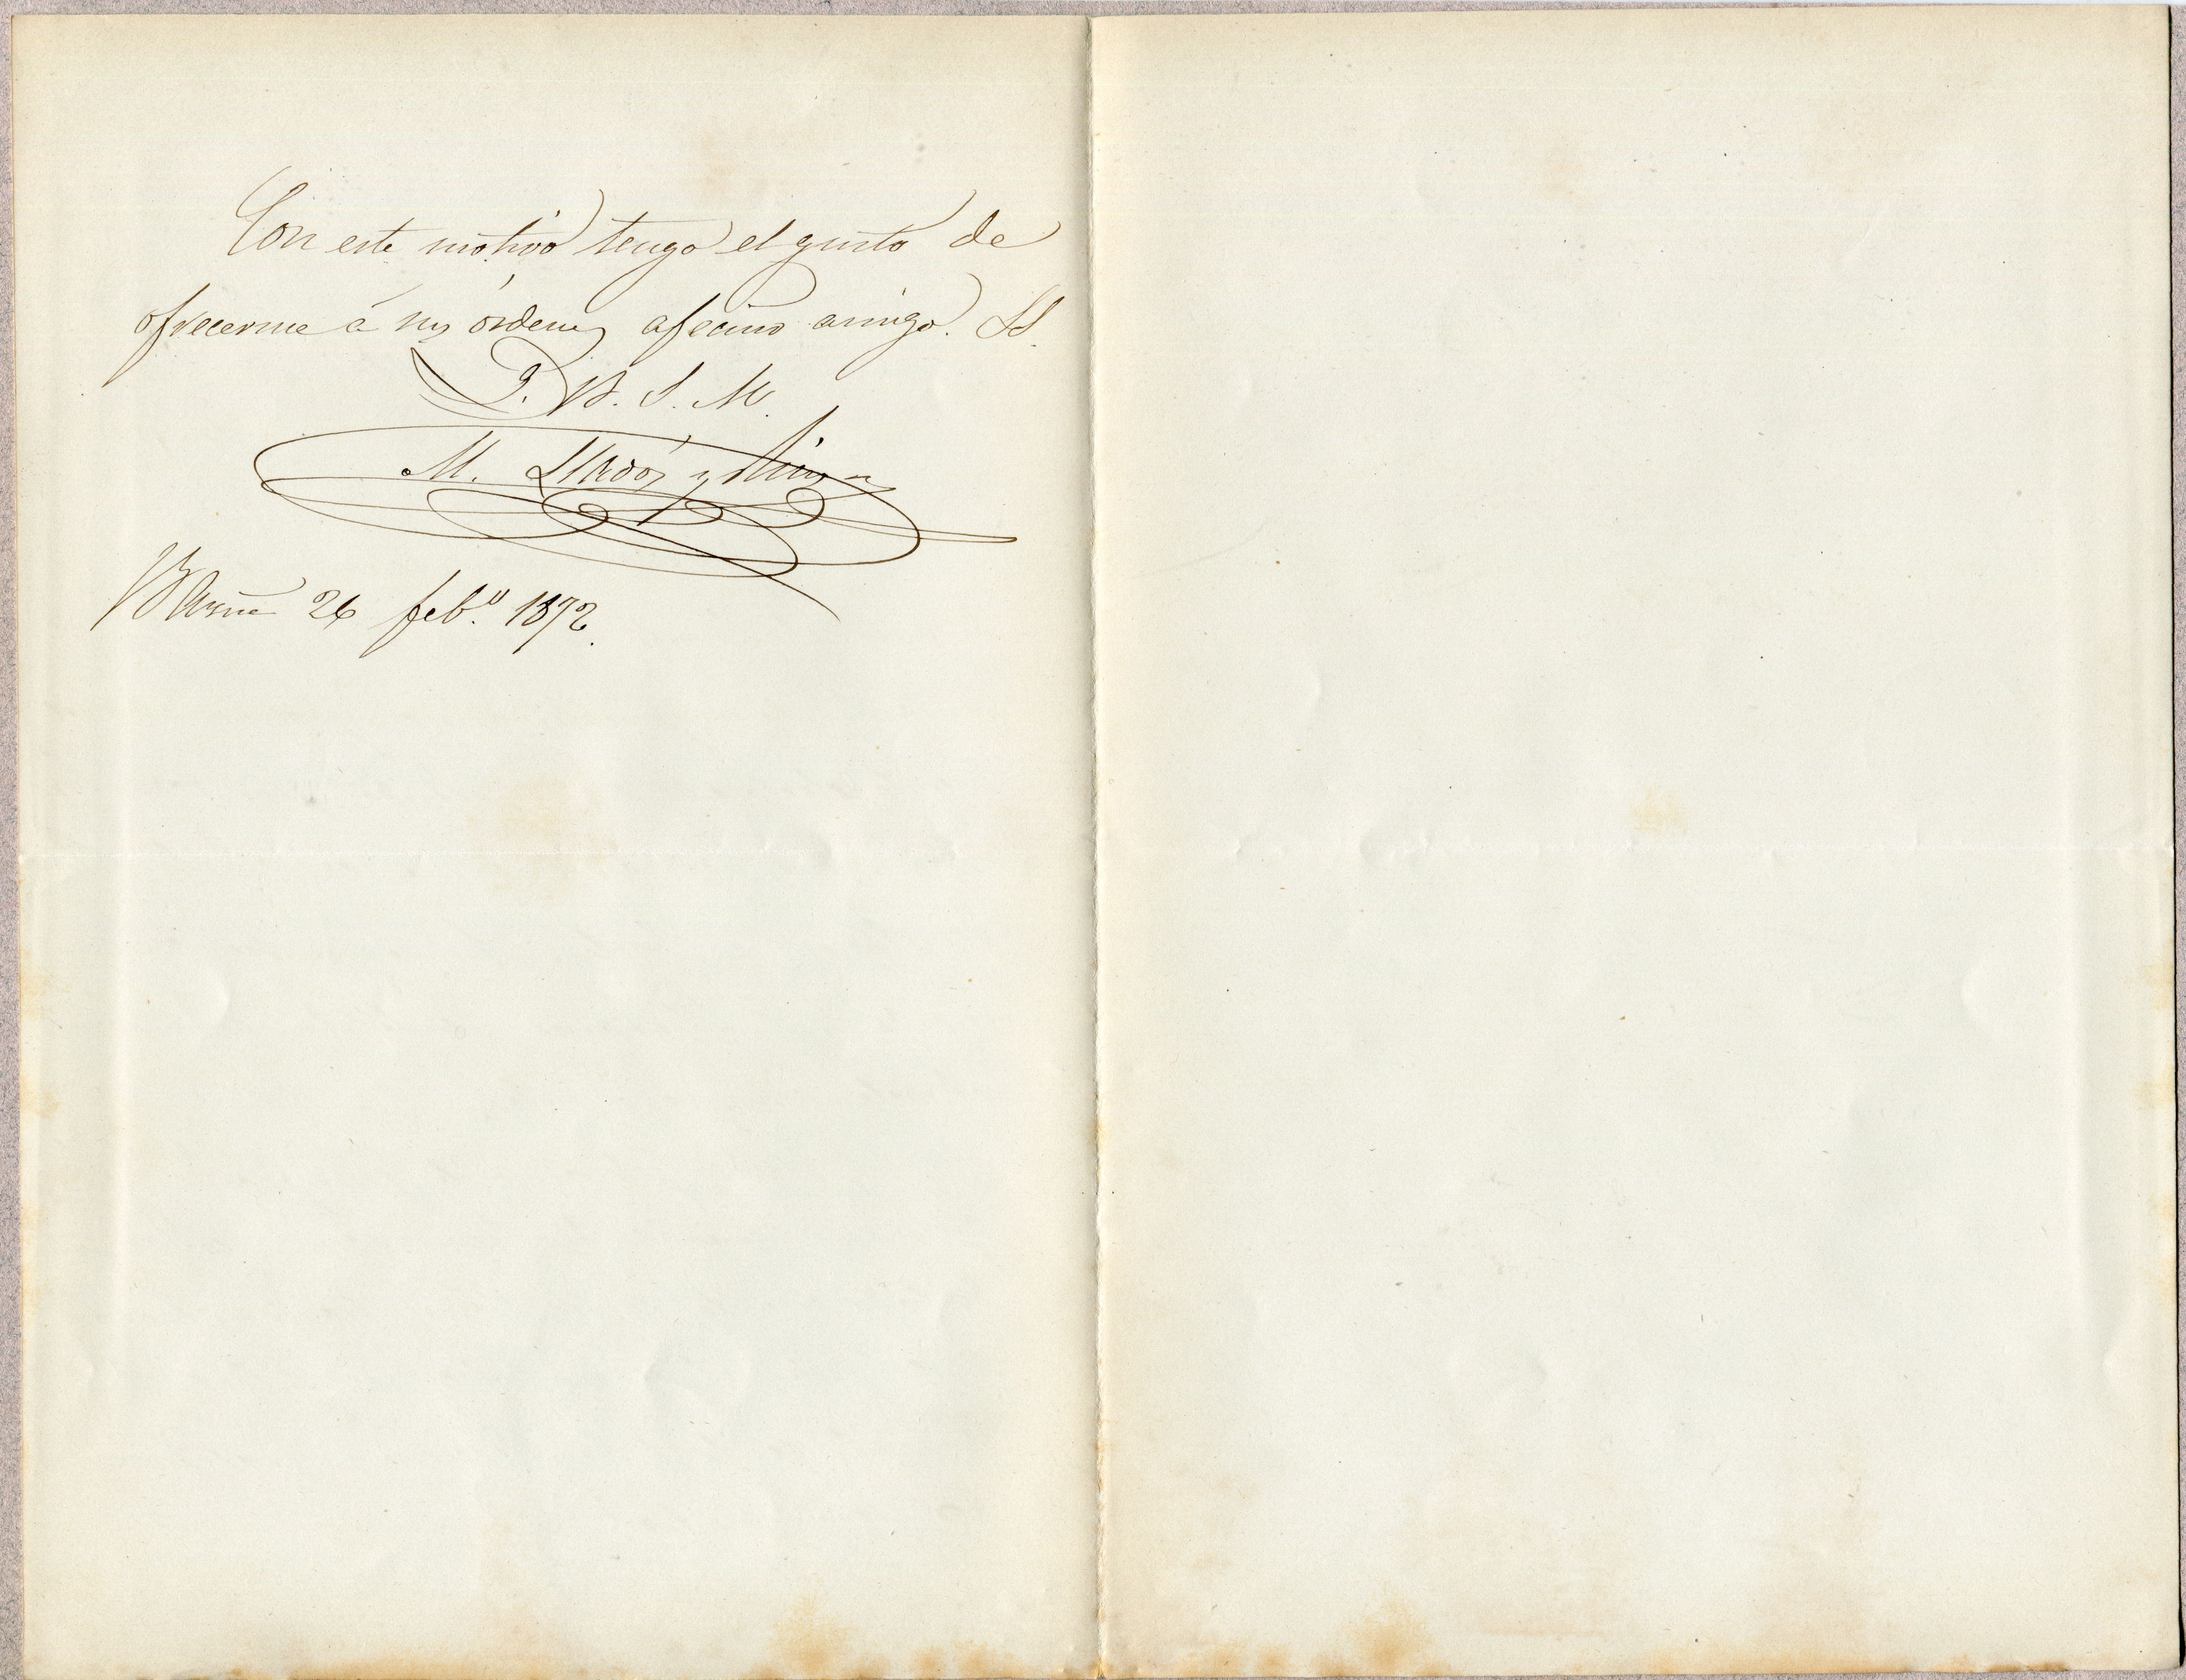 Con este motivo tengo el gusto de
ofrecerme á sus órdenes afecimo amigo. SS.
Q. B. S. M.
M. Lladós y
Barna 26 feb.º 1872.